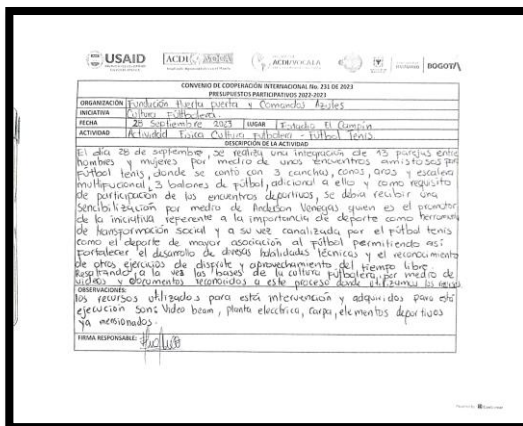 USAID
ACDI/VOCA
ACDI/VOCA LA
BOGOTÁ
CONVENIO DE COOPERACIÓN INTERNACIONAL No. 231 DE 2023
PRESUPUESTOS PARTICIPATIVOS 2022-2023
ORGANIZACIÓN Fundación Huerta puerta y Comandos Azules
INICIATIVA Cultura Futbolera.
FECHA 28 Septiembre 2023 LUGAR Estadio El Campín
ACTIVIDAD Actividad Física Cultura futbolera - Fútbol Tenis.
DESCRIPCIÓN DE LA ACTIVIDAD
El día 28 de septiembre, se realiza una integración de 13 parejas entre
hombres y mujeres por medio de unos encuentros amistosos por
Fútbol tenis, donde se contó con 3 canchas, conos, aros y escalera
multifucional, 3 balones de fútbol, adicional a ello y como requisito
de participación de los encuentros deportivos, se debía recibir una
sencibilización por medro de Anderson Venegas quien es el promotor
de la iniciativa referente a la importancia de deporte como herramienta
de transformación social y a su vez canalizada por el fútbol tenis
como el deporte de mayor asociación al fútbol permitiendo así
fortalecer el desarrollo de diversas habilidades técnicas y el reconocimiento
de otros ejercicios de disfrute y aprovechamiento del tiempo libre.
Resaltando a la vez las bases de la cultura futbolera, por medio de
videos y documentos reconocidos a este proceso donde utilizamos los
OBSERVACIONES:
los recursos utilizados para está intervención y adquiridos para está
ejecución son: Video beam, planta eleccrica, carpa, elementos deportivos
ya mensionados.
FIRMA RESPONSABLE: